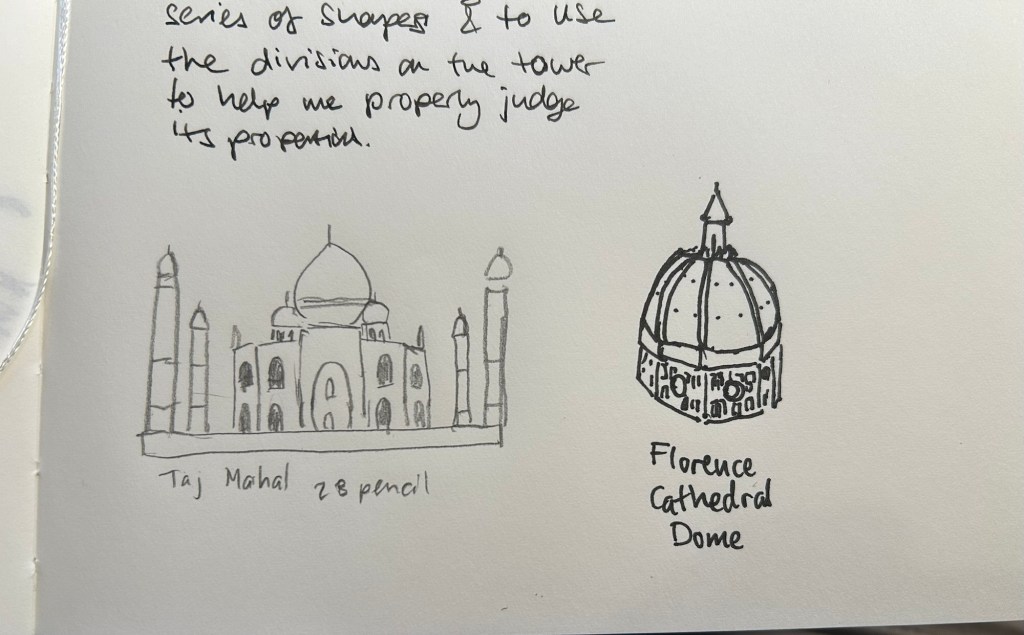 series of shapes & to use
the divisions on the tower
to help me properly judge
its proportion.
Taj Mahal 2B pencil
Florence
Cathedral
Dome